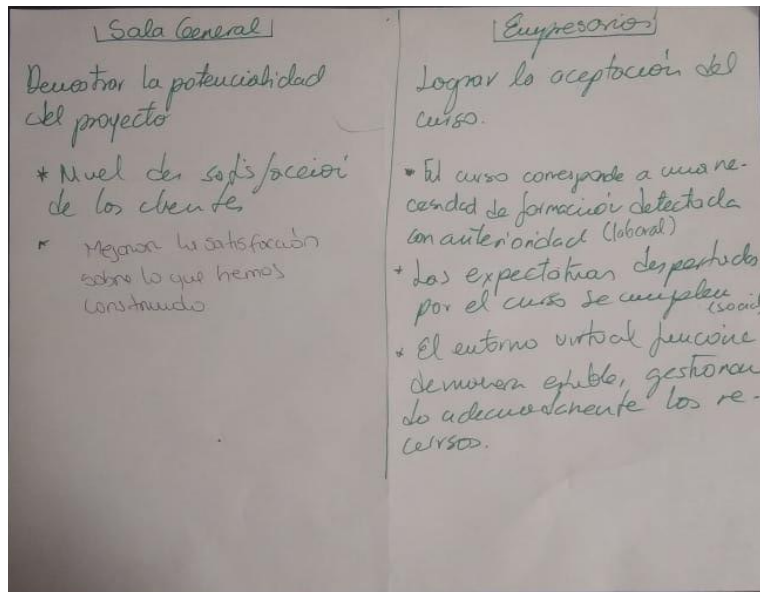 Sala General
Demostrar la potencialidad
del proyecto
* Nivel de satisfacción
de los clientes
* Mejorar la satisfacción
sobre lo que hemos
construido
Empresarios
Lograr la aceptación del
curso.
* El curso corresponde a una ne-
cesidad de formación detectada
con anterioridad (laboral)
* Las expectativas despertadas
por el curso se cumplen
(social)
* El entorno virtual funcione
de manera estable, gestionan
do adecuadamente los re-
cursos.